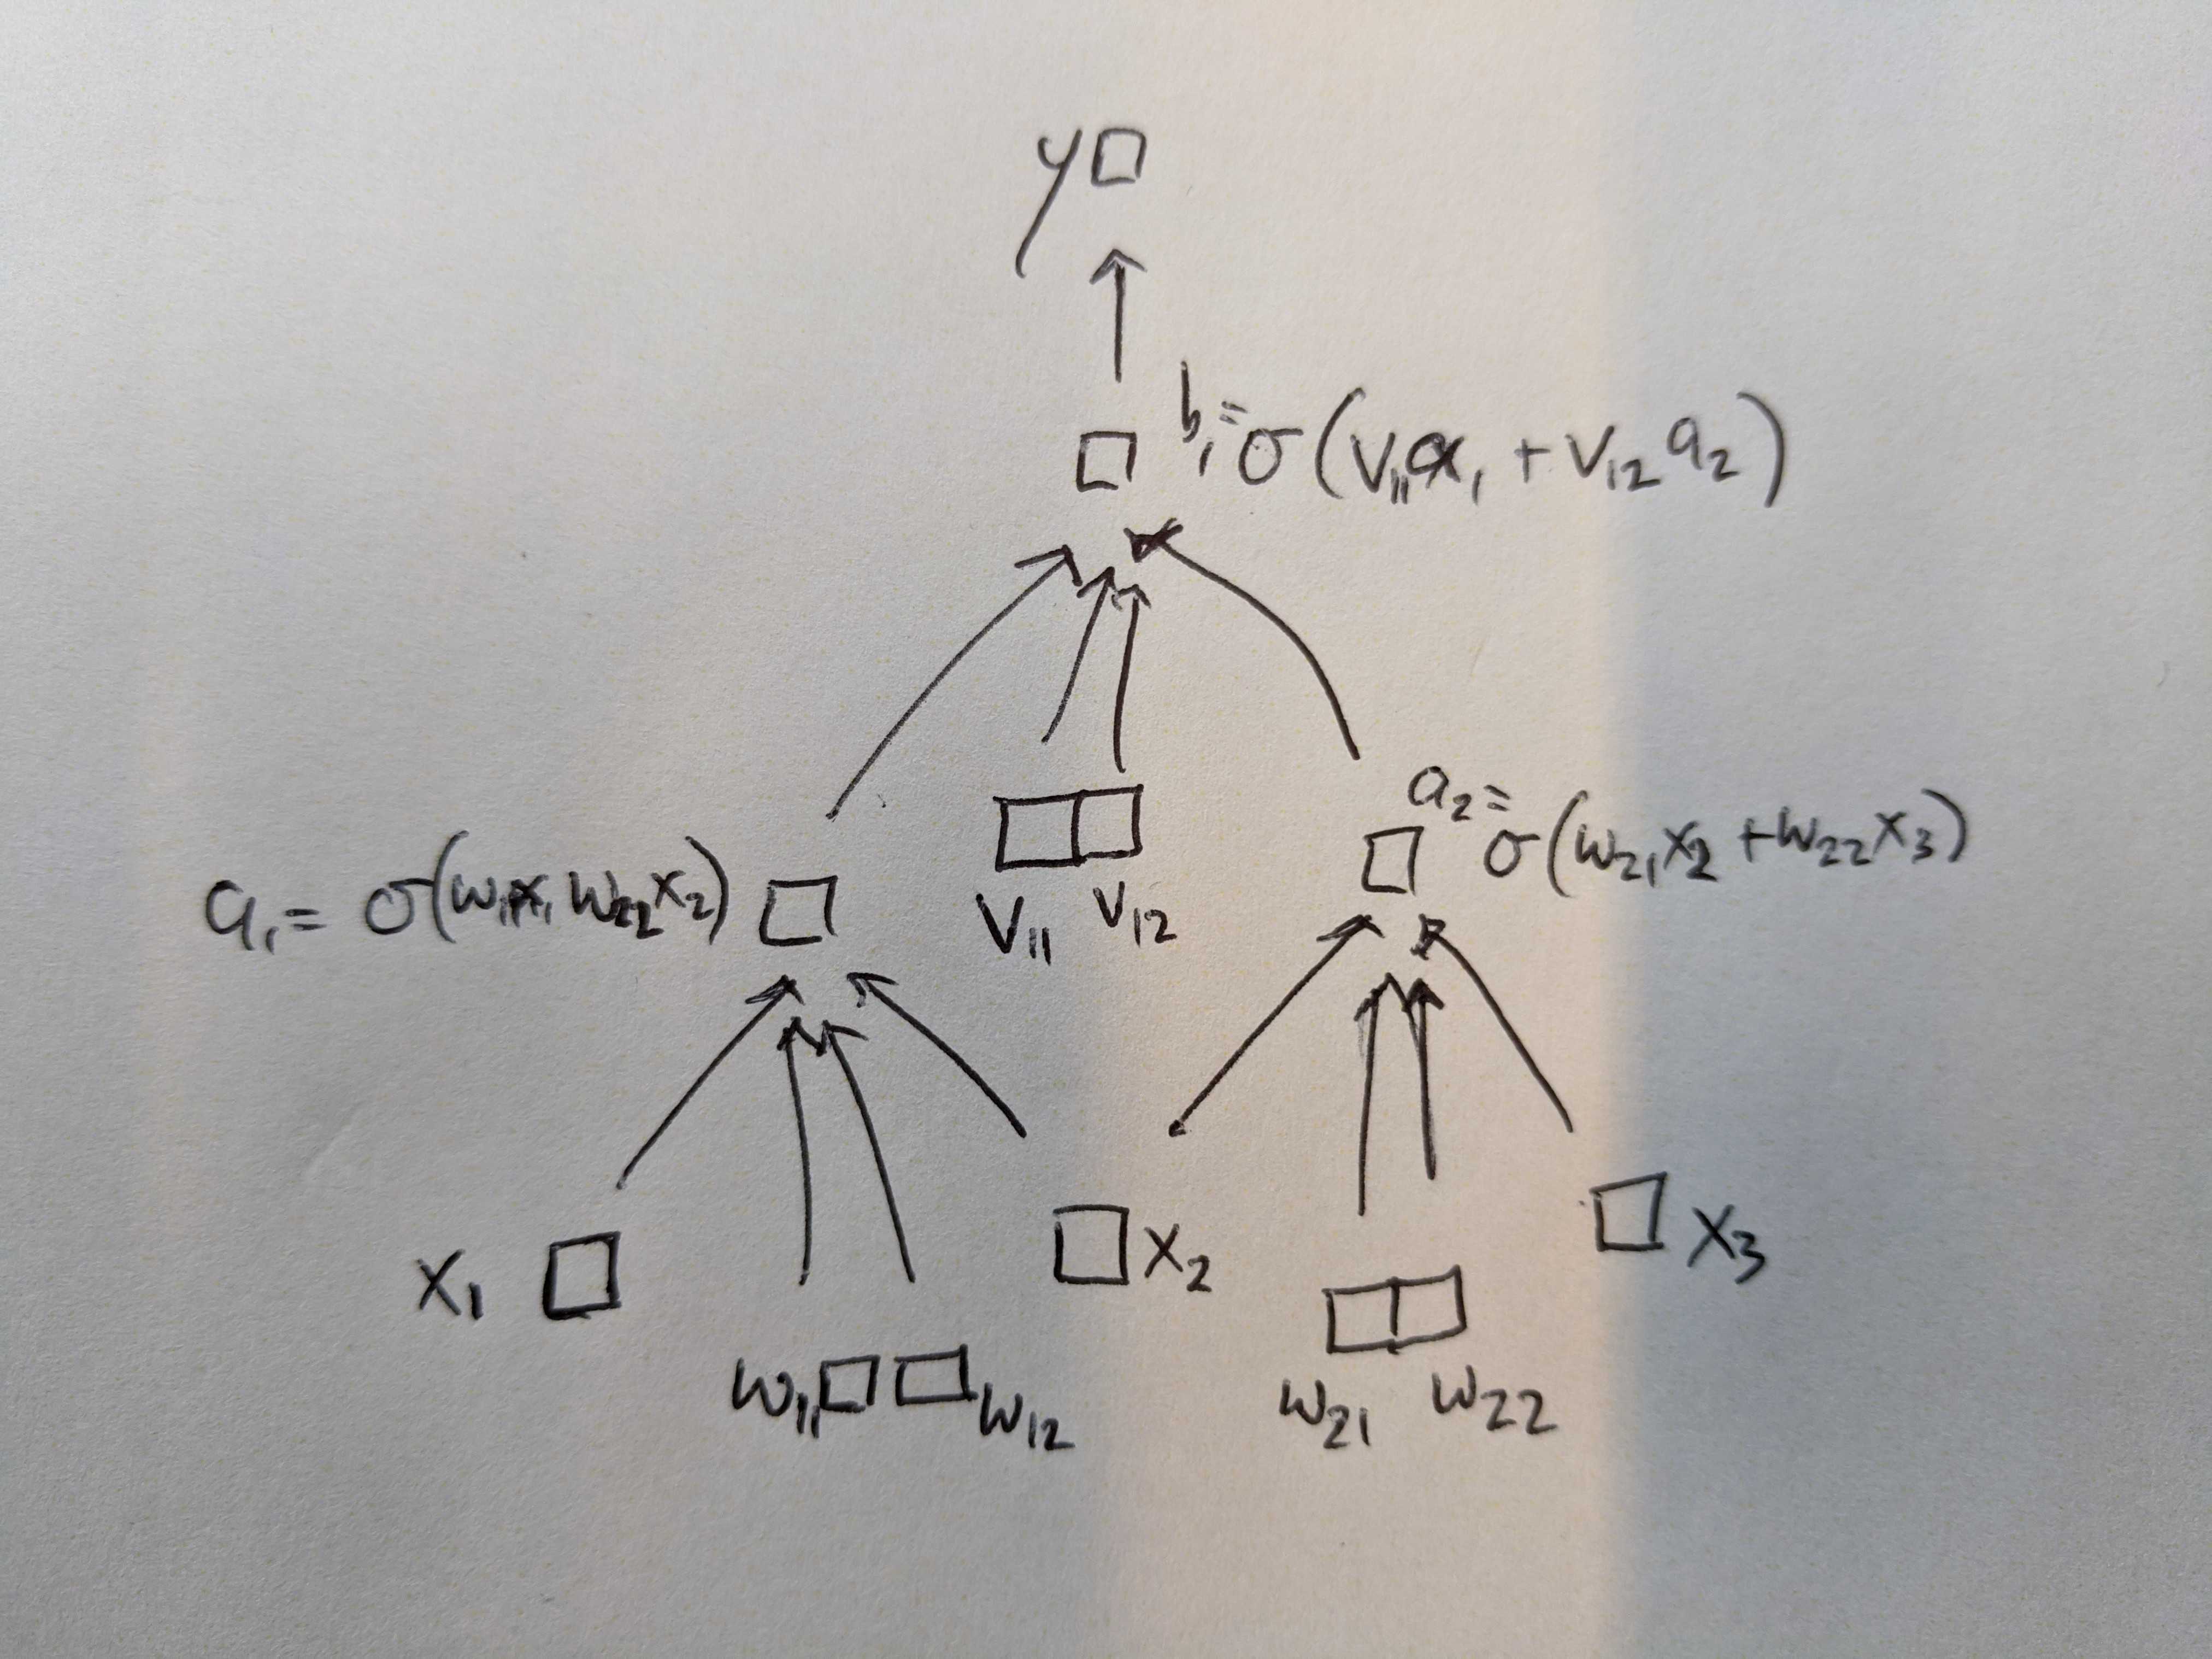 y
b₁=σ(v₁₁a₁ + v₁₂a₂)
v₁₁ v₁₂
a₂=
σ(w₂₁x₂ + w₂₂x₃)
a₁ = σ(w₁₁x₁ w₂₂x₂)
x₁
x₂
x₃
w₁₁
w₁₂
w₂₁ w₂₂